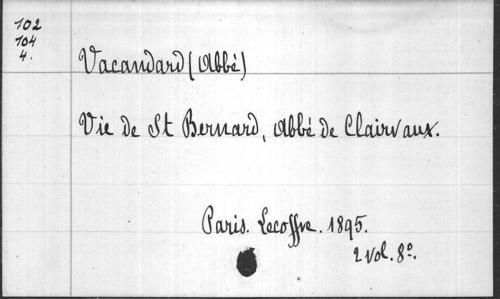 102
104
4.
Vacandard (Abbé)
Vie de St Bernard, Abbé de Clairvaux.
Paris. Lecoffre. 1895.
2 vol. 8°.